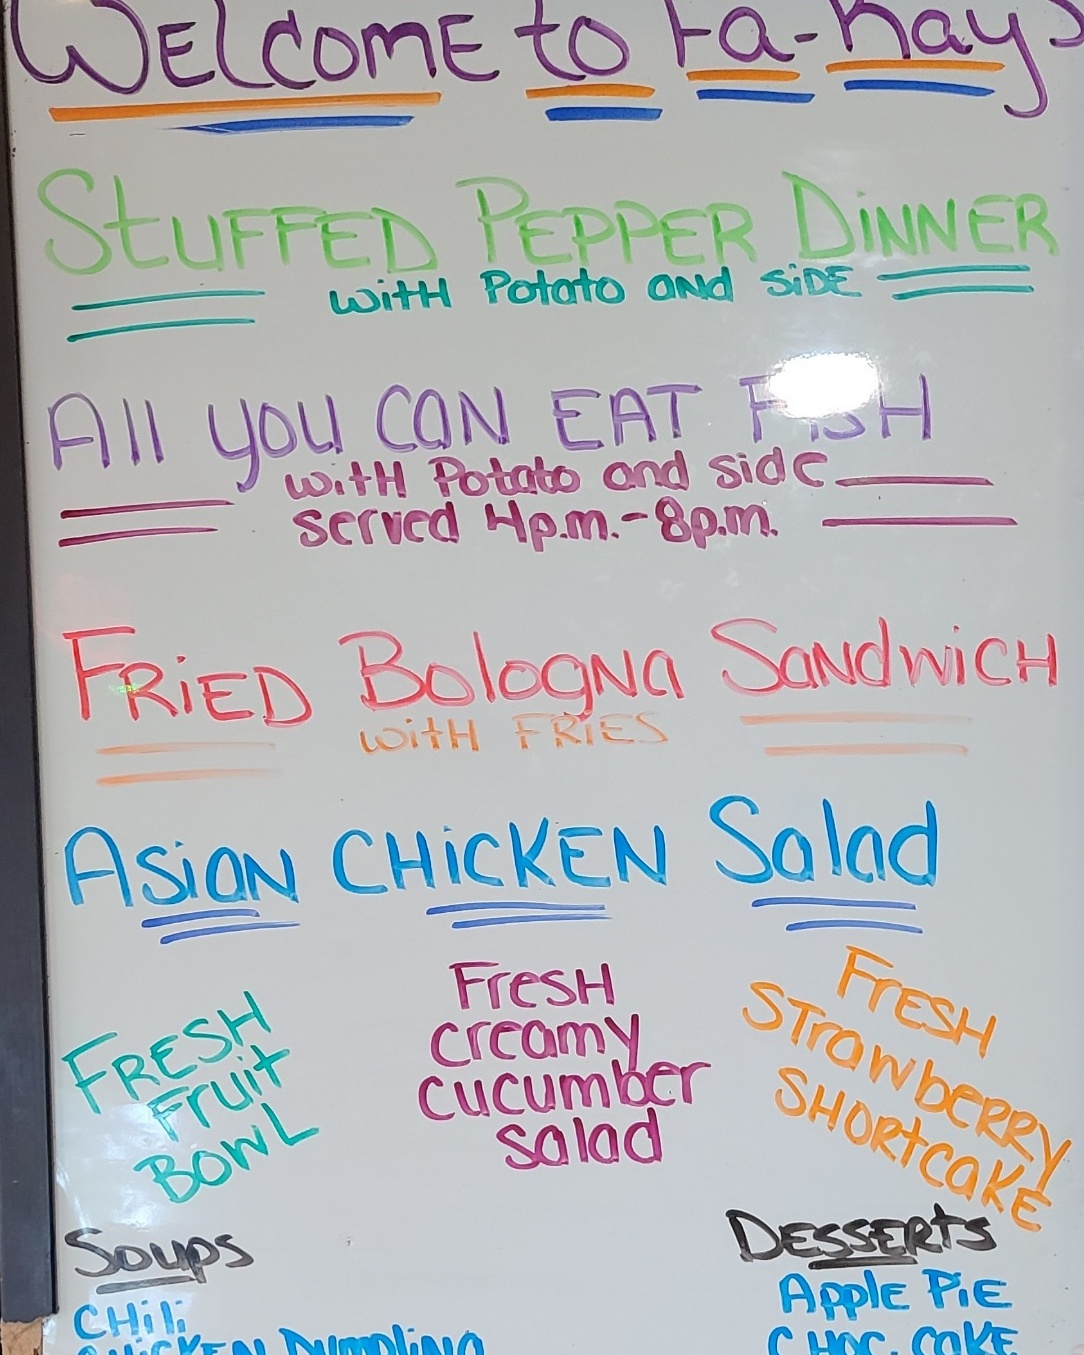 WELCOME to Fa-Kays
STUFFED PEPPER DINNER
WITH Potato AND SIDE
All YOU CAN EAT FISH
WITH Potato and side
served 4p.m.-8p.m.
FRIED Bologna SandwicH
WITH FRIES
Asian CHICKEN Salad
FRESH
Fruit
BOWL
FresH
creamy
cucumber
salad
FrESH
STrawbERRY
SHORtcaKE
Soups
CHili
CHICKEN Dumpling
DESSERtS
ApplE PIE
CHOC. CaKE